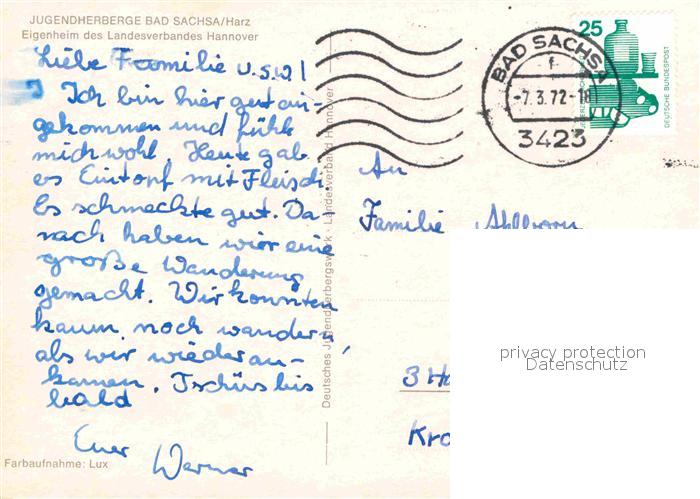 JUGENDHERBERGE BAD SACHSA/Harz
Eigenheim des Landesverbandes Hannover
Liebe Familie u.s.w!
Ich bin hier gut an-
gekommen und fühle
mich wohl. Heute gab
es Eintopf mit Fleisch.
Es schmeckte gut. Da-
nach haben wir eine
große Wanderung
gemacht. Wir konnten
kaum noch wandern,
als wir wieder an-
kamen. Tschüs bis
bald
Euer Werner
Farbaufnahme: Lux
Deutsches Jugendherbergswerk · Landesverband Hannover
BAD SACHSA
f
-7.3.72-18
3423
25
DEUTSCHE BUNDESPOST
An
Familie Ahlborn
3 Ha
Kro
privacy protection
Datenschutz